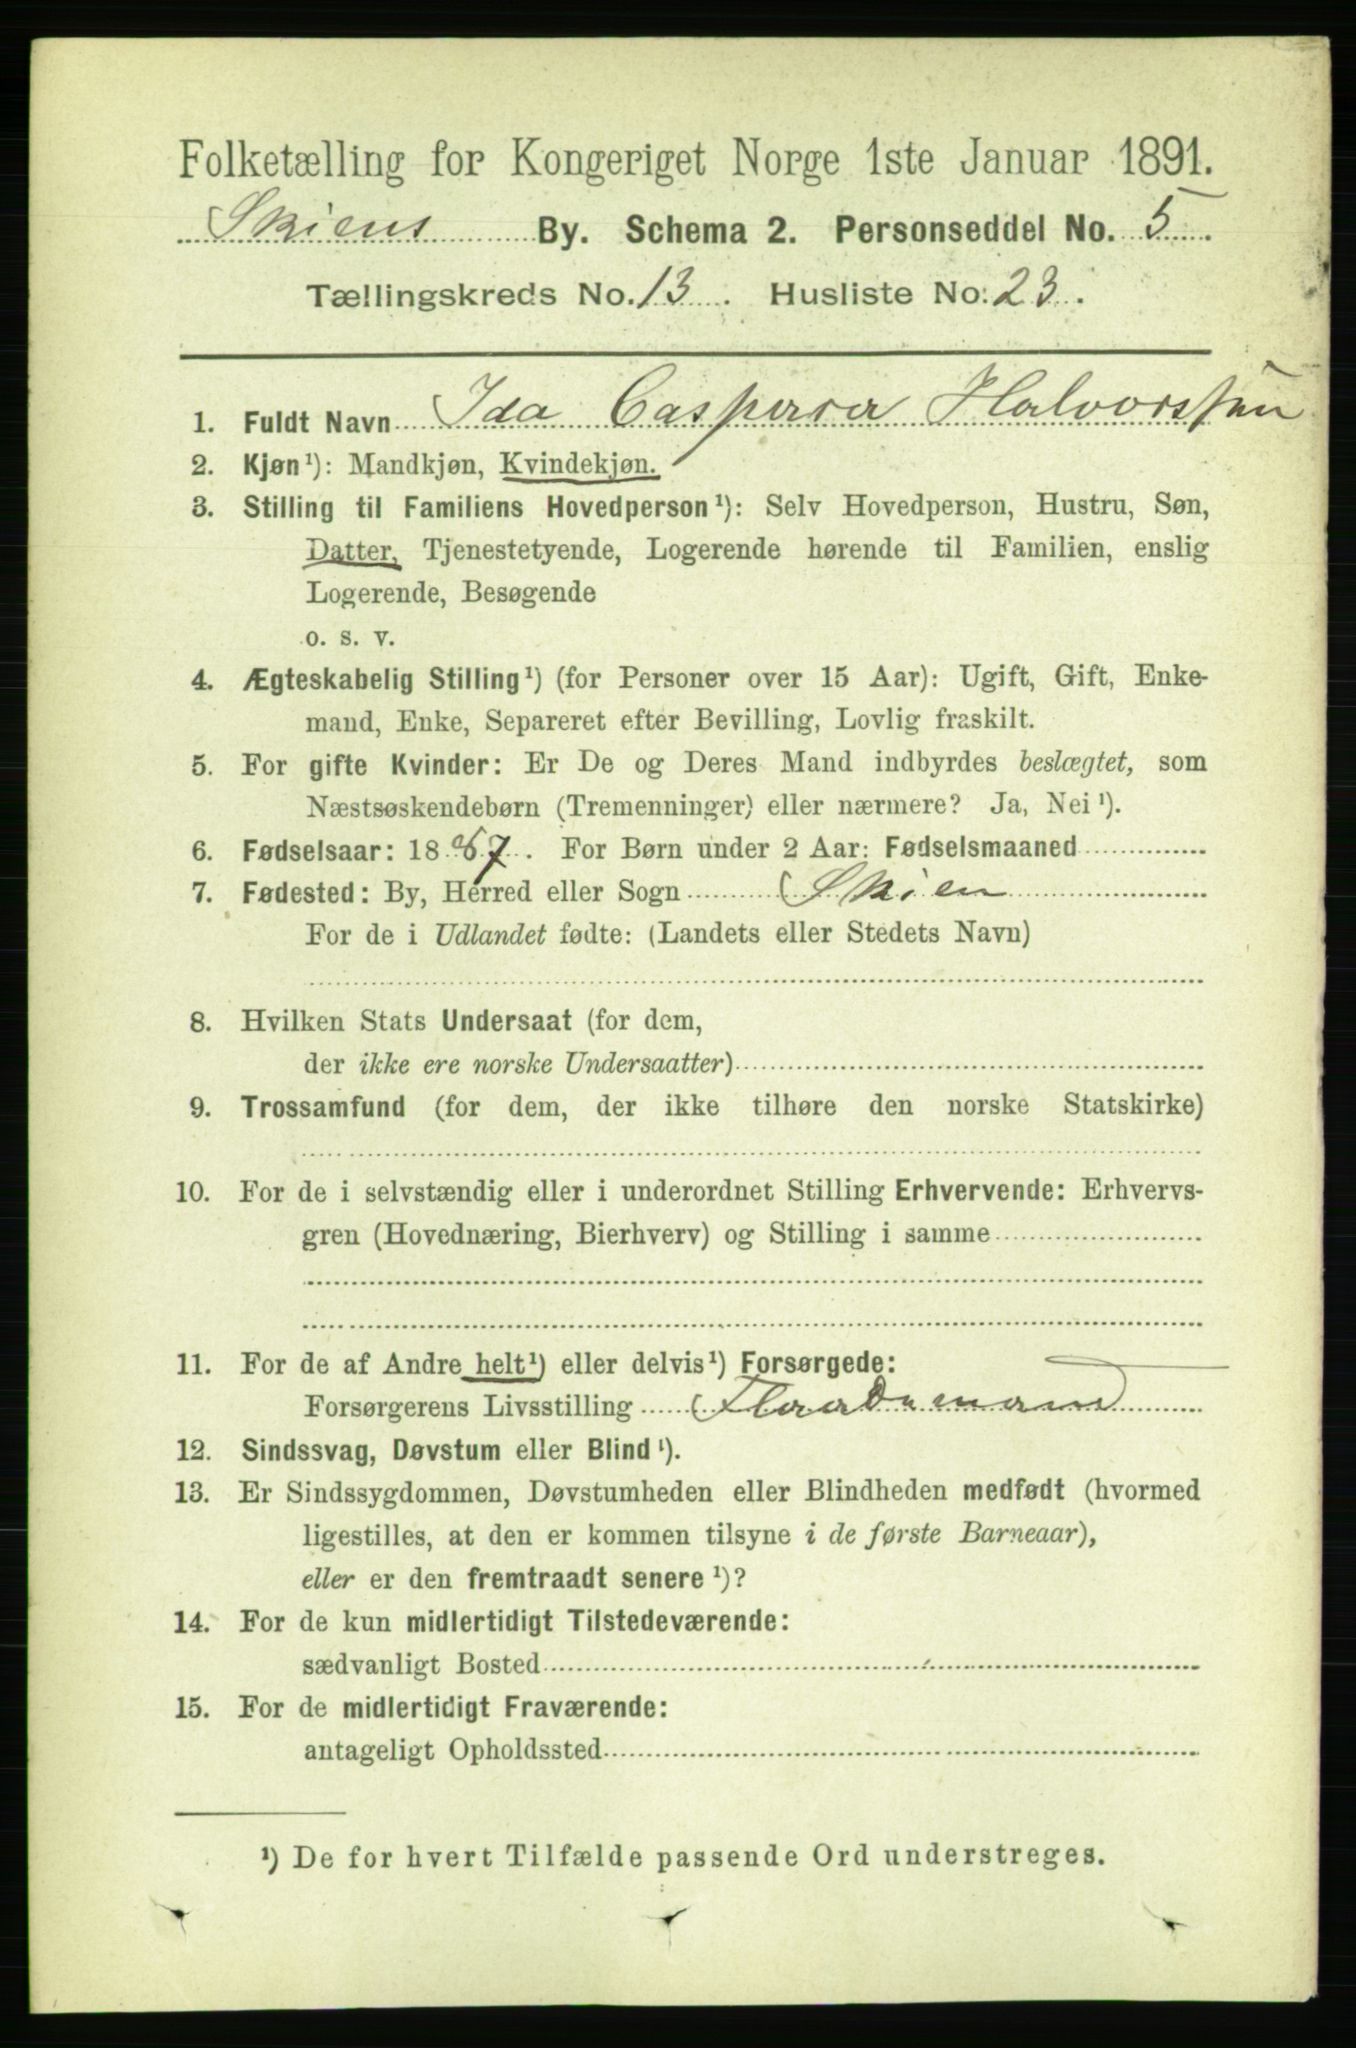 Folketælling for Kongeriget Norge 1ste Januar 1891.
Skiens By. Schema 2. Personseddel No. 5
Tællingskreds No. 13. Husliste No: 23.
1. Fuldt Navn Ida Halvorssen
2. Kjøn¹): Mandkjøn, Kvindekjøn.
3. Stilling til Familiens Hovedperson¹): Selv Hovedperson, Hustru, Søn,
Datter, Tjenestetyende, Logerende hørende til Familien, enslig
Logerende, Besøgende
o. s. v.
4. Ægteskabelig Stilling¹) (for Personer over 15 Aar): Ugift, Gift, Enke-
mand, Enke, Separeret efter Bevilling, Lovlig fraskilt.
5. For gifte Kvinder: Er De og Deres Mand indbyrdes beslægtet, som
Næstsøskendebørn (Tremenninger) eller nærmere? Ja, Nei¹).
6. Fødselsaar: 1887. For Børn under 2 Aar: Fødselsmaaned
7. Fødested: By, Herred eller Sogn Skien
For de i Udlandet fødte: (Landets eller Stedets Navn)
8. Hvilken Stats Undersaat (for dem,
der ikke ere norske Undersaatter)
9. Trossamfund (for dem, der ikke tilhøre den norske Statskirke)
10. For de i selvstændig eller i underordnet Stilling Erhvervende: Erhvervs-
gren (Hovednæring, Bierhverv) og Stilling i samme
11. For de af Andre helt¹) eller delvis¹) Forsørgede:
Forsørgerens Livsstilling
12. Sindssvag, Døvstum eller Blind¹).
13. Er Sindssygdommen, Døvstumheden eller Blindheden medfødt (hvormed
ligestilles, at den er kommen tilsyne i de første Barneaar),
eller er den fremtraadt senere¹)?
14. For de kun midlertidigt Tilstedeværende:
sædvanligt Bosted
15. For de midlertidigt Fraværende:
antageligt Opholdssted
¹) De for hvert Tilfælde passende Ord understreges.